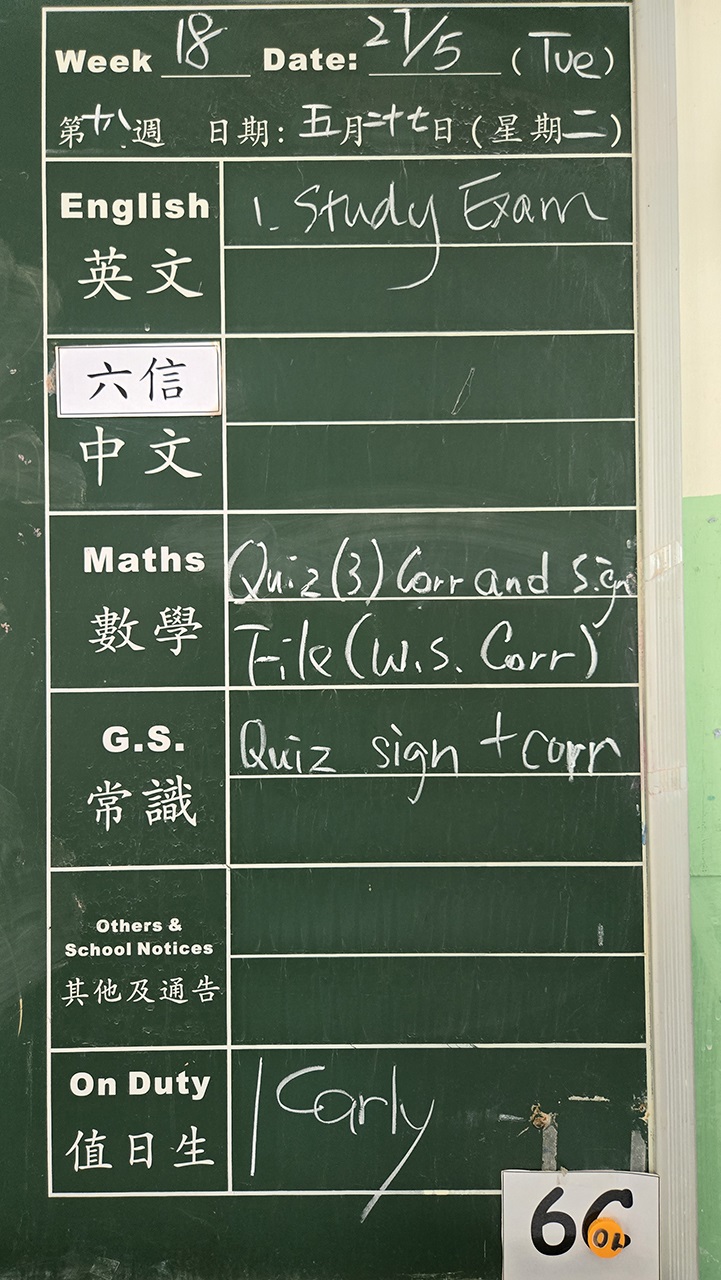 Week 18 Date: 27/5 (Tue)
第十八週 日期: 五月二十七日 (星期二)
English 1. Study Exam
英文
六信
中文
Maths Quiz (3) Corr and Sign
數學 File (W.S. Corr)
G.S. Quiz sign + corr
常識
Others &
School Notices
其他及通告
On Duty Carly
值日生
6C